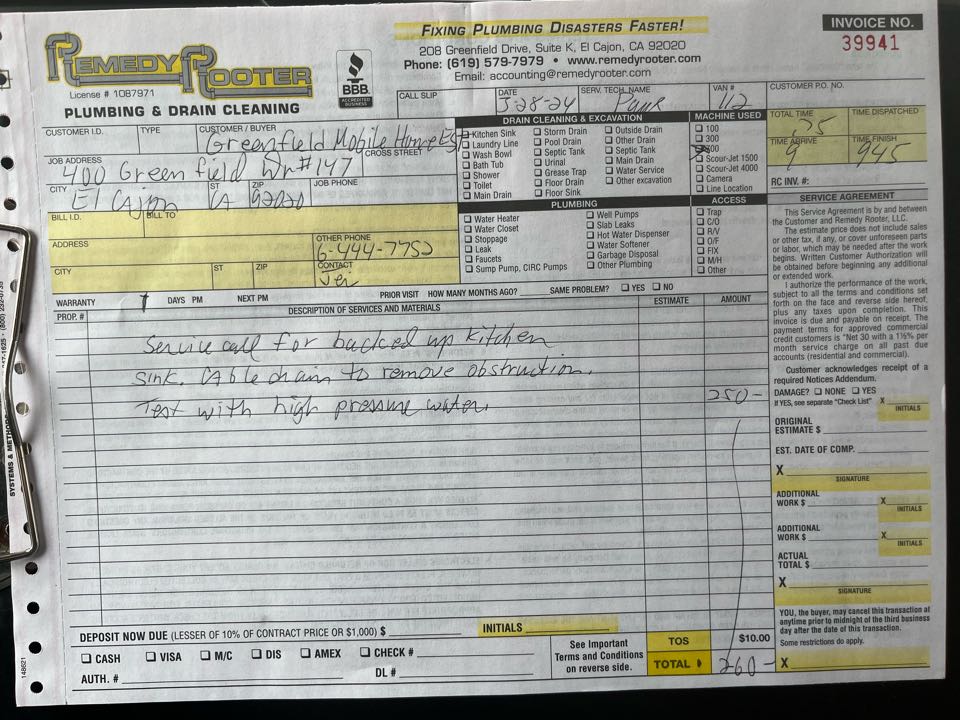 REMEDY ROOTER
License # 1087971
PLUMBING & DRAIN CLEANING
BBB
ACCREDITED BUSINESS
FIXING PLUMBING DISASTERS FASTER!
208 Greenfield Drive, Suite K, El Cajon, CA 92020
Phone: (619) 579-7979 • www.remedyrooter.com
Email: accounting@remedyrooter.com
INVOICE NO.
39941
CALL SLIP
DATE 3-28-24
SERV. TECH. NAME
VAN # 112
CUSTOMER P.O. NO.
CUSTOMER I.D.
TYPE
CUSTOMER / BUYER Greenfield Mobile Home Est
JOB ADDRESS 400 Greenfield Dr #147
CROSS STREET
CITY El Cajon
ST CA
ZIP 92020
JOB PHONE
BILL I.D.
BILL TO
ADDRESS
OTHER PHONE 6-444-7752
CITY
ST
ZIP
CONTACT
DRAIN CLEANING & EXCAVATION
Kitchen Sink
Laundry Line
Wash Bowl
Bath Tub
Shower
Toilet
Main Drain
Storm Drain
Pool Drain
Septic Tank
Urinal
Grease Trap
Floor Drain
Floor Sink
Outside Drain
Other Drain
Septic Tank
Main Drain
Water Service
Other excavation
MACHINE USED
100
300
500
Scour-Jet 1500
Scour-Jet 4000
Camera
Line Location
PLUMBING
Water Heater
Water Closet
Stoppage
Leak
Faucets
Sump Pump, CIRC Pumps
Well Pumps
Slab Leaks
Hot Water Dispenser
Water Softener
Garbage Disposal
Other Plumbing
ACCESS
Trap
C/O
R/V
O/F
FIX
M/H
Other
TOTAL TIME .75
TIME DISPATCHED
TIME ARRIVE 9
TIME FINISH 945
RC INV. #:
SERVICE AGREEMENT
This Service Agreement is by and between
the Customer and Remedy Rooter, LLC.
The estimate price does not include sales
or other tax, if any, or cover unforeseen parts
or labor, which may be needed after the work
begins. Written Customer Authorization will
be obtained before beginning any additional
or extended work.
I authorize the performance of the work,
subject to all the terms and conditions set
forth on the face and reverse side hereof,
plus any taxes upon completion. This
invoice is due and payable on receipt. The
payment terms for approved commercial
credit customers is "Net 30 with a 1½% per
month service charge on all past due
accounts (residential and commercial).
Customer acknowledges receipt of a
required Notices Addendum.
DAMAGE? NONE YES
If YES, see separate "Check List" X
INITIALS
ORIGINAL
ESTIMATE $
EST. DATE OF COMP.
X
SIGNATURE
ADDITIONAL
WORK $ X
INITIALS
ADDITIONAL
WORK $ X
INITIALS
ACTUAL
TOTAL $
X
SIGNATURE
YOU, the buyer, may cancel this transaction at
anytime prior to midnight of the third business
day after the date of this transaction.
Some restrictions do apply.
X
WARRANTY DAYS PM NEXT PM PRIOR VISIT HOW MANY MONTHS AGO? SAME PROBLEM? YES NO
PROP. # DESCRIPTION OF SERVICES AND MATERIALS ESTIMATE AMOUNT
Service call for backed up kitchen
sink. Cable drain to remove obstruction.
Test with high pressure water. 250-
DEPOSIT NOW DUE (LESSER OF 10% OF CONTRACT PRICE OR $1,000) $ INITIALS
CASH VISA M/C DIS AMEX CHECK #
AUTH. # DL #
See Important
Terms and Conditions
on reverse side.
TOS $10.00
TOTAL 260-
148621